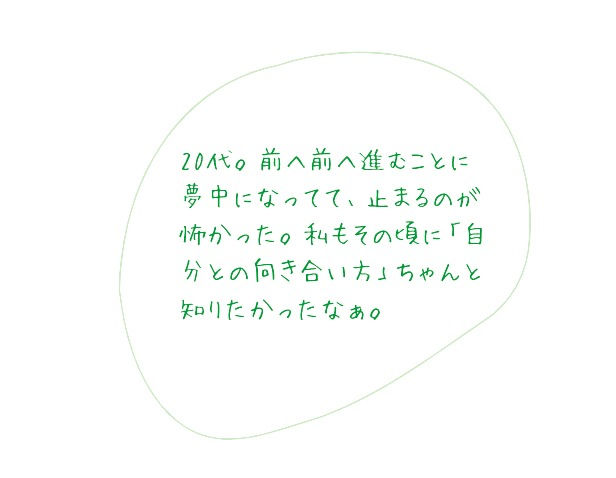 20代。前へ前へ進むことに
夢中になってて、止まるのが
怖かった。私もその頃に「自
分との向き合い方」ちゃんと
知りたかったなぁ。